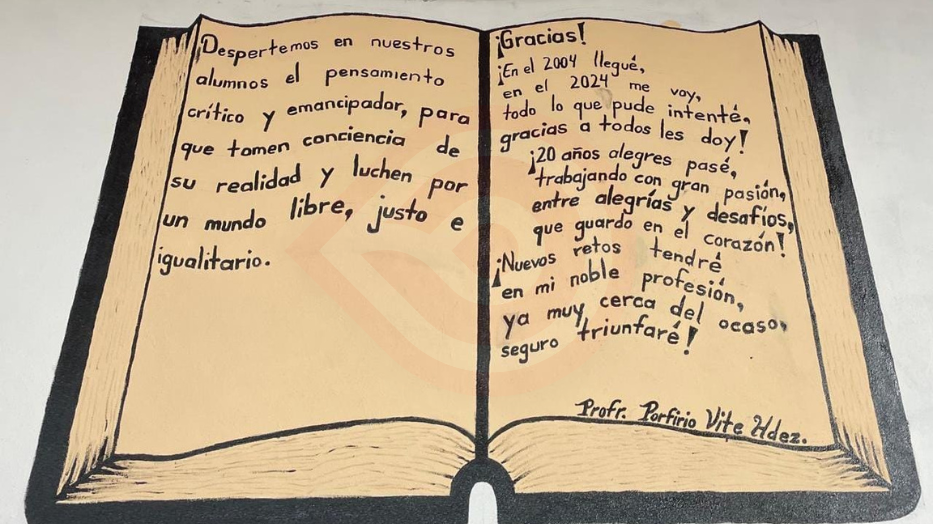 ¡Despertemos en nuestros
alumnos el pensamiento
crítico y emancipador, para
que tomen conciencia de
su realidad y luchen por
un mundo libre, justo e
igualitario.
¡Gracias!
¡En el 2004 llegué,
en el 2024 me voy,
todo lo que pude intenté,
gracias a todos les doy!
¡20 años alegres pasé,
trabajando con gran pasión,
entre alegrías y desafíos,
que guardo en el corazón!
¡Nuevos retos tendré
en mi noble profesión,
ya muy cerca del ocaso,
seguro triunfaré!
Profr. Porfirio Vite Hdez.